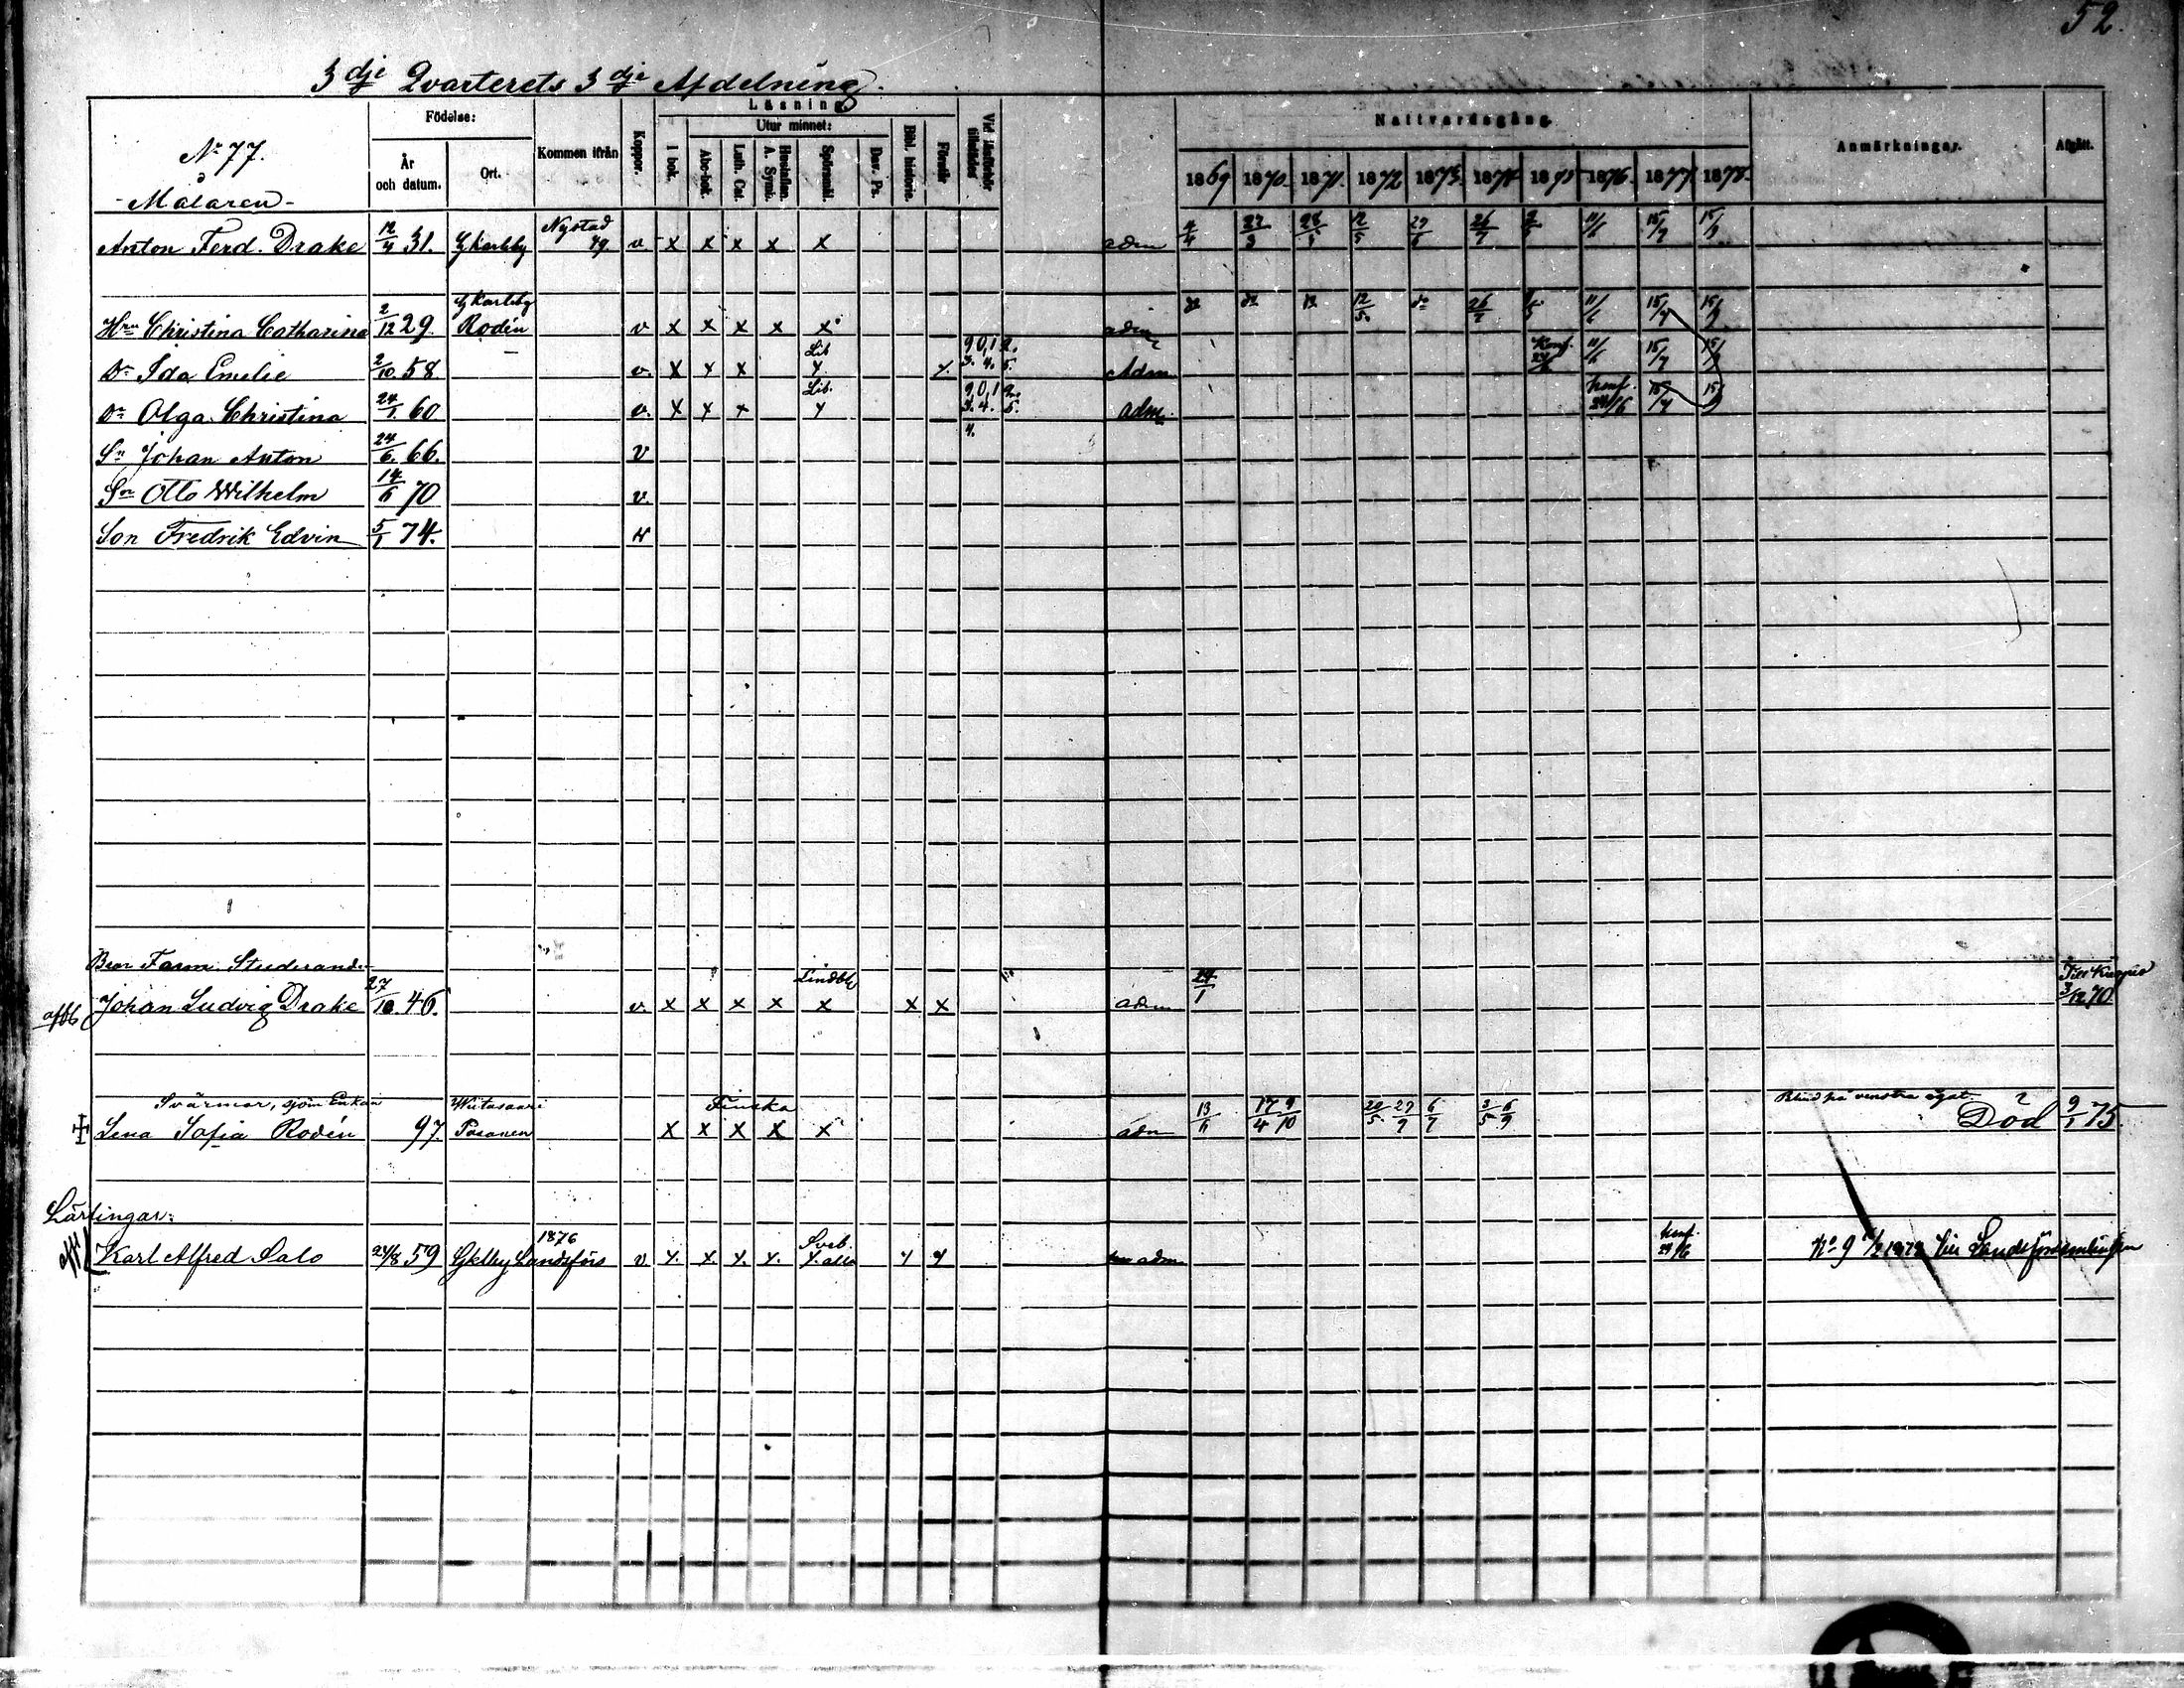 52.
3dje Qvarterets 3dje Afdelning.
Födelse: Kommen ifrån Koppor. Läsning Vid läsförhör tillstädes Nattvardsgång. Anmärkningar. Afgått.
Utur minnet:
No 77. År och datum. Ort. I bok. Abc-bok. Luth. Cat. Hustaflan. A. Symb. Spörsmål. Dav. Ps. Bibl. historie. Förstår 1869 1870. 1871. 1872 1873. 1874 1875 1876. 1877 1878.
- Målaren -
Anton Ferd. Drake 12/4 31. G Karleby Nystad 49. v x x x x x adm 4/4 12/5 29/6 26/7 11/6 15/7 15/9
Hru Christina Catharina 2/12 29. G Karleby Rodén v x x x x x adm 12/5. do 26/7 11/6 15/7 15/9
Dr Ida Emelie 2/10 58. v. x x x Lib x x. 9,0,1,2. 3. 4. 5. Adm Konf. 24/6 11/6 15/7 15/9
Dr Olga Christina 24/1 60 v. x x x Lib. x 9,0,1,2 3. 4. 5. adm Konf. 24/6 15/7 15/9
Sn Johan Anton 24/6. 66. v
Sn Otto Wilhelm 14/6 70 v.
Son Fredrik Edvin 5/1 74.
Bror Farm. Studerande
afl6 Johan Ludvig Drake 27/10. 46. v. x x x x Lindbl x x x adm 24/1 Till Kuopio 3/12 70.
Svärmor, sjöm Enkan
Lena Sofia Rodén 97. Wiitasaari Pasanen Finska x x x x x adm 13/6 17/4 9/10 20/5 29/9 6/7 3/5 6/9 Blind på venstra ögat. Död 9/1 75.
Lärlingar:
Karl Alfred Salo 24/8 59 Gkelby Landsförs 1876 v x. x. x. x. Sveb. x. alla x x adm konf. 24/6 No 9 till Landsförsamlingen